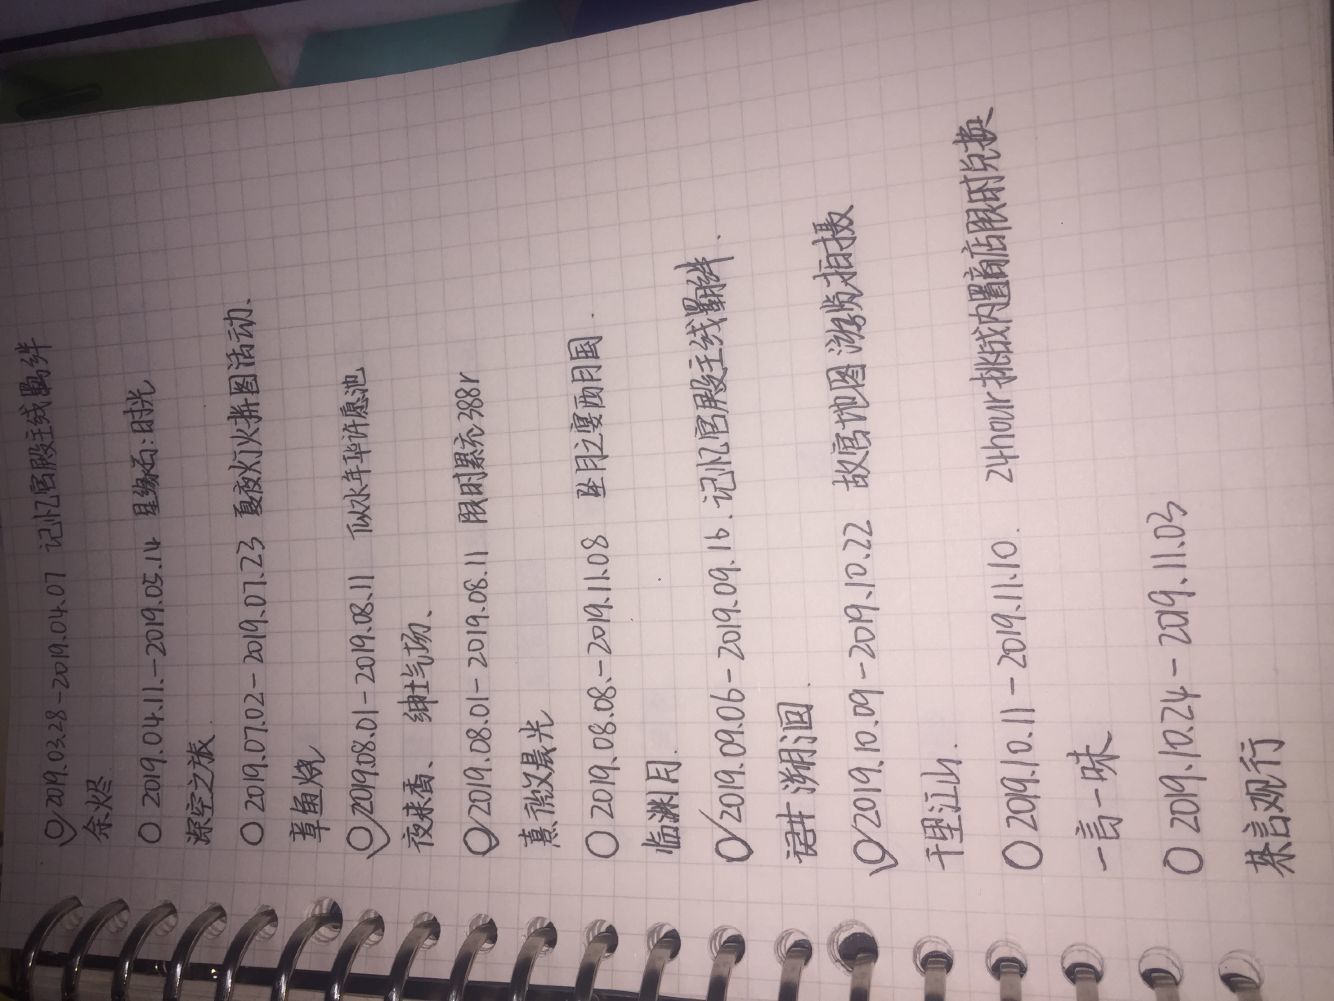 2019.03.28-2019.04.07 记忆宫殿主线羁绊
余烬
2019.04.11.-2019.05.14 星缘石:时光
深空之旅
2019.07.02-2019.07.23 夏夜灯火拼图活动、
章鱼烧
2019.08.01-2019.08.11 似水年华许愿池
夜来香、 绅士气场、
2019.08.01-2019.08.11 限时累充388r
熹微晨光
2019.08.08.-2019.11.08 坠月之宴西月国.
临渊月.
2019.09.06-2019.09.16. 记忆宫殿主线羁绊.
溯洄.
2019.10.09-2019.10.22 故宫地图游览拍摄
千里江山.
2019.10.11-2019.11.10. 24hour挑战内置商店限时兑换
一言一味
2019.10.24-2019.11.03
慕言观行